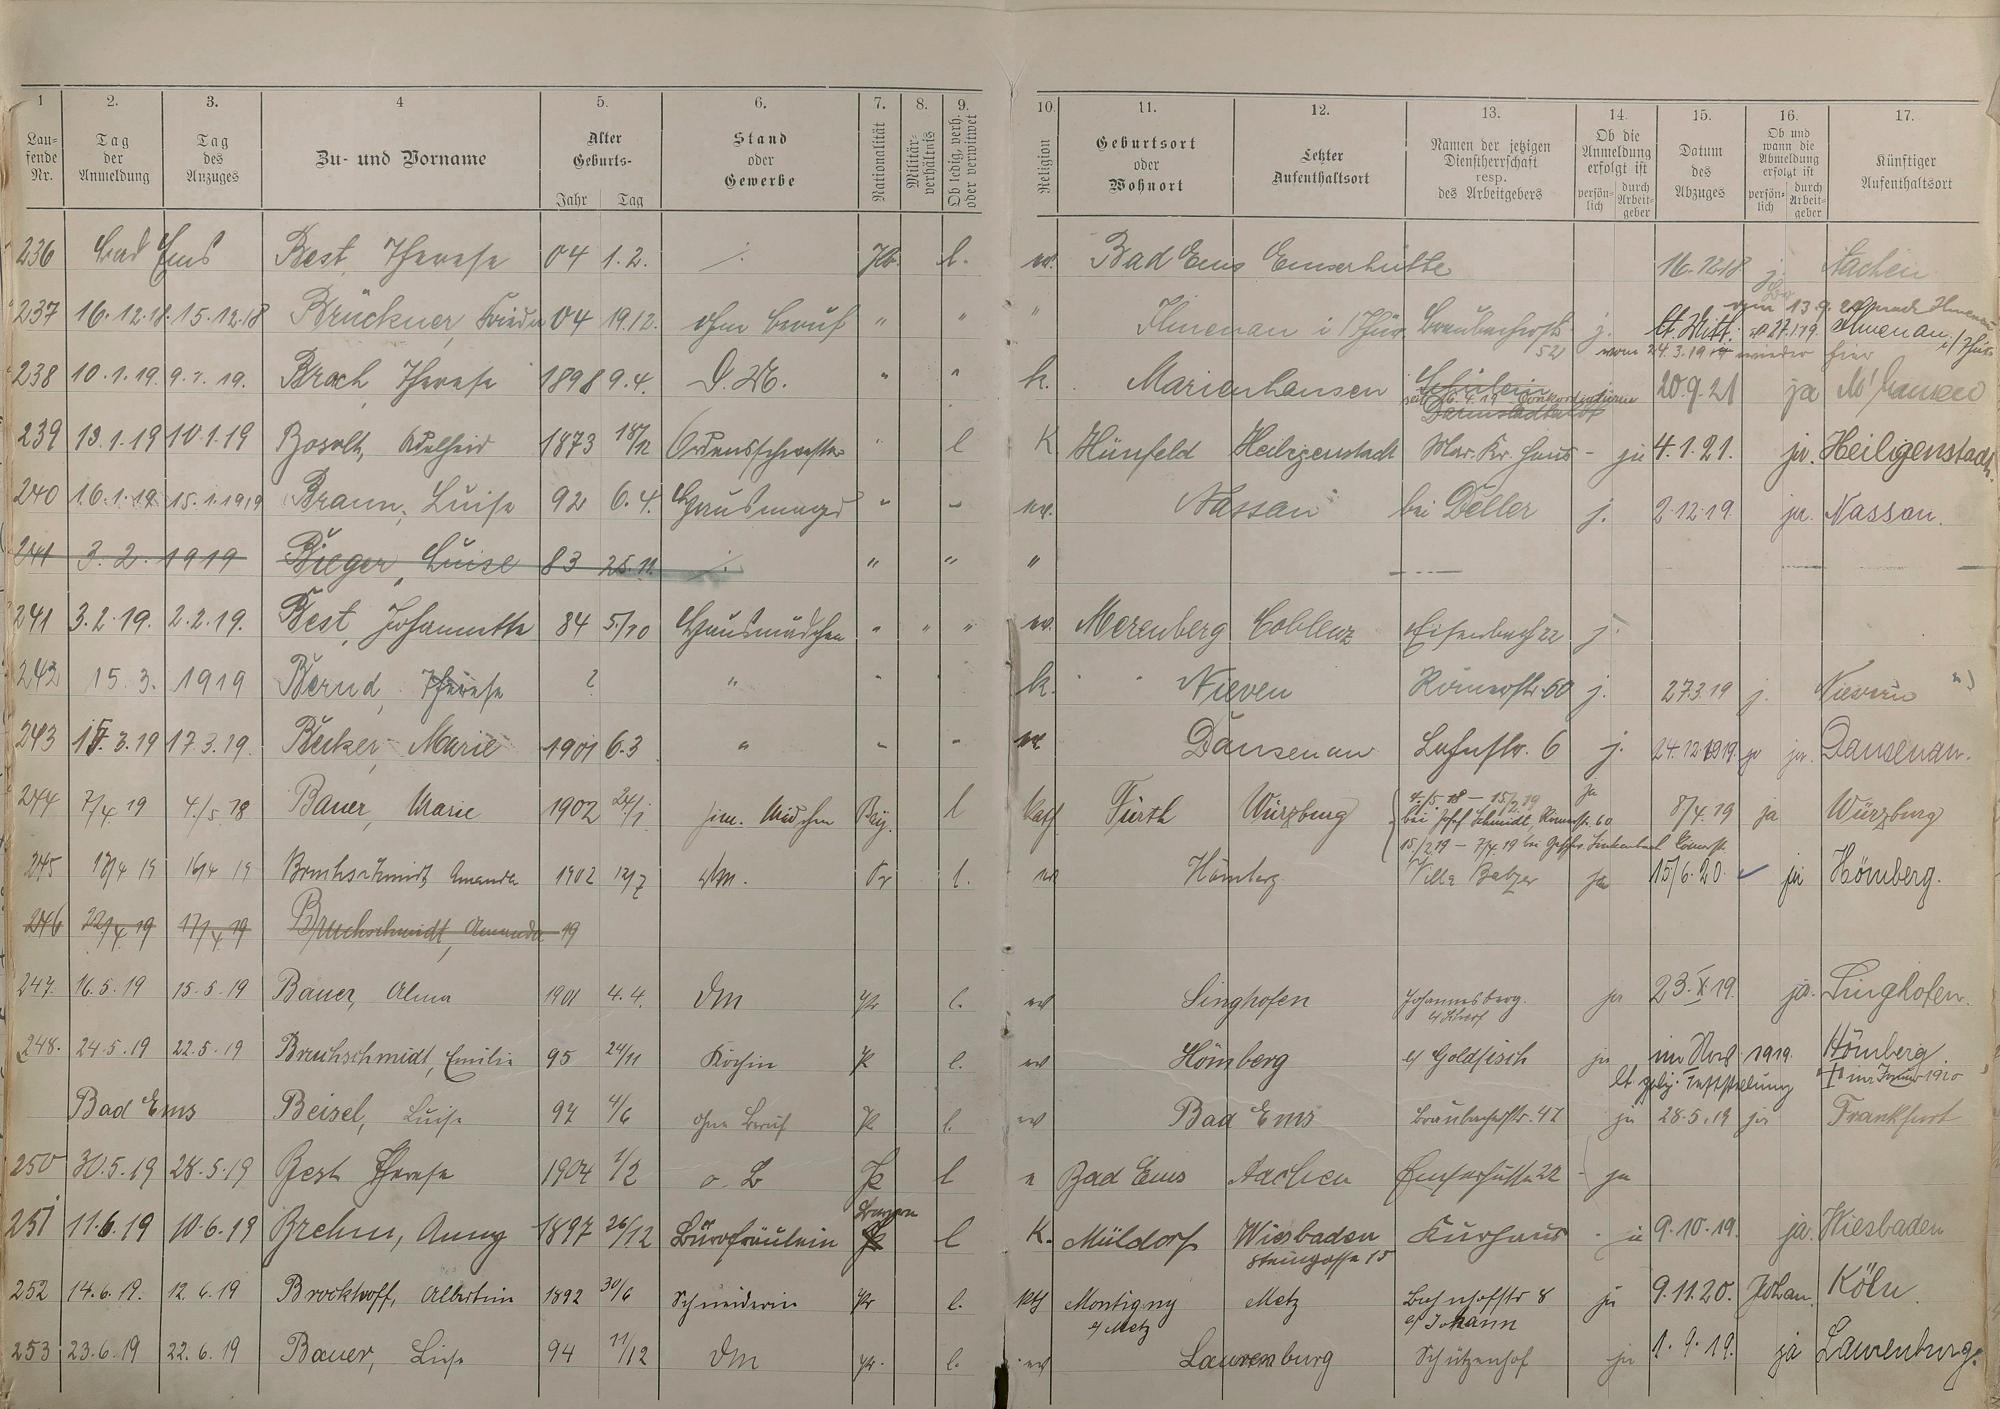 1 2. 3. 4 5. 6. 7. 8. 9. 10. 11. 12. 13. 14. 15. 16. 17.
Laufende Nr. Tag der Anmeldung Tag des Anzuges Zu- und Vorname Alter Geburts- Jahr Tag Stand oder Gewerbe Nationalität Militärverhältnis Ob ledig, verh. oder verwitwet Religion Geburtsort oder Wohnort Letzter Aufenthaltsort Namen der jetzigen Dienstherrschaft resp. des Arbeitgebers Ob die Anmeldung erfolgt ist persönlich durch Arbeitgeber Datum des Abzuges Ob und wann die Abmeldung erfolgt ist persönlich durch Arbeitgeber Künftiger Aufenthaltsort
236 Bad Ems Best, Therese 04 1.2. l. ev. Bad Ems Emserhütte 16.12.18 j. Aachen
237 16.12.18. 15.12.18 Brückner, 04 19.12. ohne Beruf " " " Ilmenau i/Thür. Braubacherstr. 52 j. lt. Mitt. 27.1.19. Ilmenau i/Thür.
vom 24.3.19 wieder hier
238 10.1.19. 9.1.19. Broch, Therese 1898 9.4. D.M. " " k. Marienhausen 20.9.21 ja M'hausen
239 13.1.19 10.1.19 Adelheid 1873 18/12 Ordensschwester l K Hünfeld Heiligenstadt Mar. Kr. Haus - ja 4.1.21. ja. Heiligenstadt
240 16.1.19. 15.1.1919 Braun, Luise 92 6.4. Hausmagd " " ev. Nassau bei Deller j. 2.12.19. ja. Nassau.
241 3.2.1919 Bieger, Luise 83 25.11. " " "
241 3.2.19. 2.2.19. Best, Johannette 84 5/10 Hausmädchen " " " ev. Merenberg Coblenz Eisenbach 22 j.
242 15.3.1919 Bernd, Therese ? " " " k. Nieven Römerstr. 50 j. 27.3.19 j. Nievern
243 17.3.19 17.3.19. Becker, Marie 1901 6.3 " " " ev. Dausenau Lahnstr. 6 j. 24.12.1919 ja. Dausenau.
244 7/4 19 4./5 18 Bauer, Marie 1902 24/1 Mädchen Bay. l kath Fürth Würzburg 4./5.18 - 15/2 19 bei Josef Schmidt, Römerstr. 60 ja 8/4.19 ja Würzburg
15./2.19 - 7/4.19 bei
245 17/4 19 16/4 19 Bruchschmidt, Amanda 1902 12/7 Pr l. ev Hömberg Villa Balzer ja 15/6.20. ja Hömberg.
246 22/4 19 17/4 19 Bruchschmidt, Amanda 19
247. 16.5.19 15.5.19 Bauer, Alma 1901 4.4. DM Pr l. ev Singhofen Johannesberg. ja 23.X.19. ja. Singhofen.
248. 24.5.19 22.5.19 Bruchschmidt, Emilie 95 24/11 Köchin P l. ev Hömberg Goldfisch ja im Nov. 1919. Hömberg.
lt. Feststellung † im Januar 1920
Bad Ems Beisel, Luise 97 4/6 ohne Beruf P l. ev Bad Ems Braubacherstr. 47 ja 28.5.19 ja Frankfurt
250 30.5.19 28.5.19 Best Therese 1904 1/2 o. B P l e Bad Ems Aachen Emserhütte 22 ja
251 11.6.19 10.6.19 Brehm, Anny 1897 26/12 Bürofräulein l K. Müldorf Wiesbaden Kurhaus 9.10.19. ja. Wiesbaden
Steingasse 15
252 14.6.19. 12.6.19 Brockhoff, Albertine 1892 30/6 Schneiderin Pr l. kth Montigny Metz Bahnhofstr 8 ja 9.11.20. Johan. Köln.
b/ Metz b/ Johann
253 23.6.19 22.6.19 Bauer, Liese 94 11/12 DM pr. l. ev Laurenburg Schützenhof ja 1.9.19. ja Laurenburg.